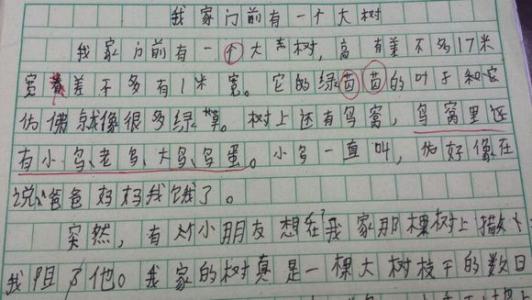 我家门前有一个大树
我家门前有一个大树,高有差不多17米
宽差不多有1米宽。它的绿茵茵的叶子和它
仿佛就像很多绿草。树上还有鸟窝,鸟窝里还
有小鸟、老鸟、大鸟、鸟蛋。小鸟一直叫,他好像在
说:爸爸妈妈我饿了。
突然,有小朋友想在我家那棵树上
我阻了他。我家的树真是一棵大树枝干的数日